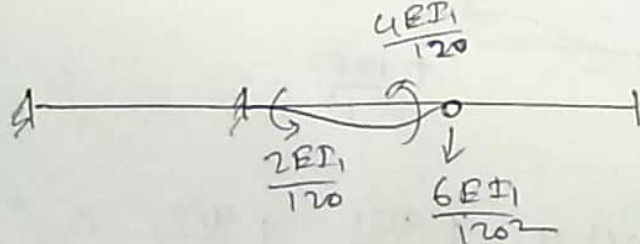 4EI₁
120
2EI₁
120
6EI₁
120²